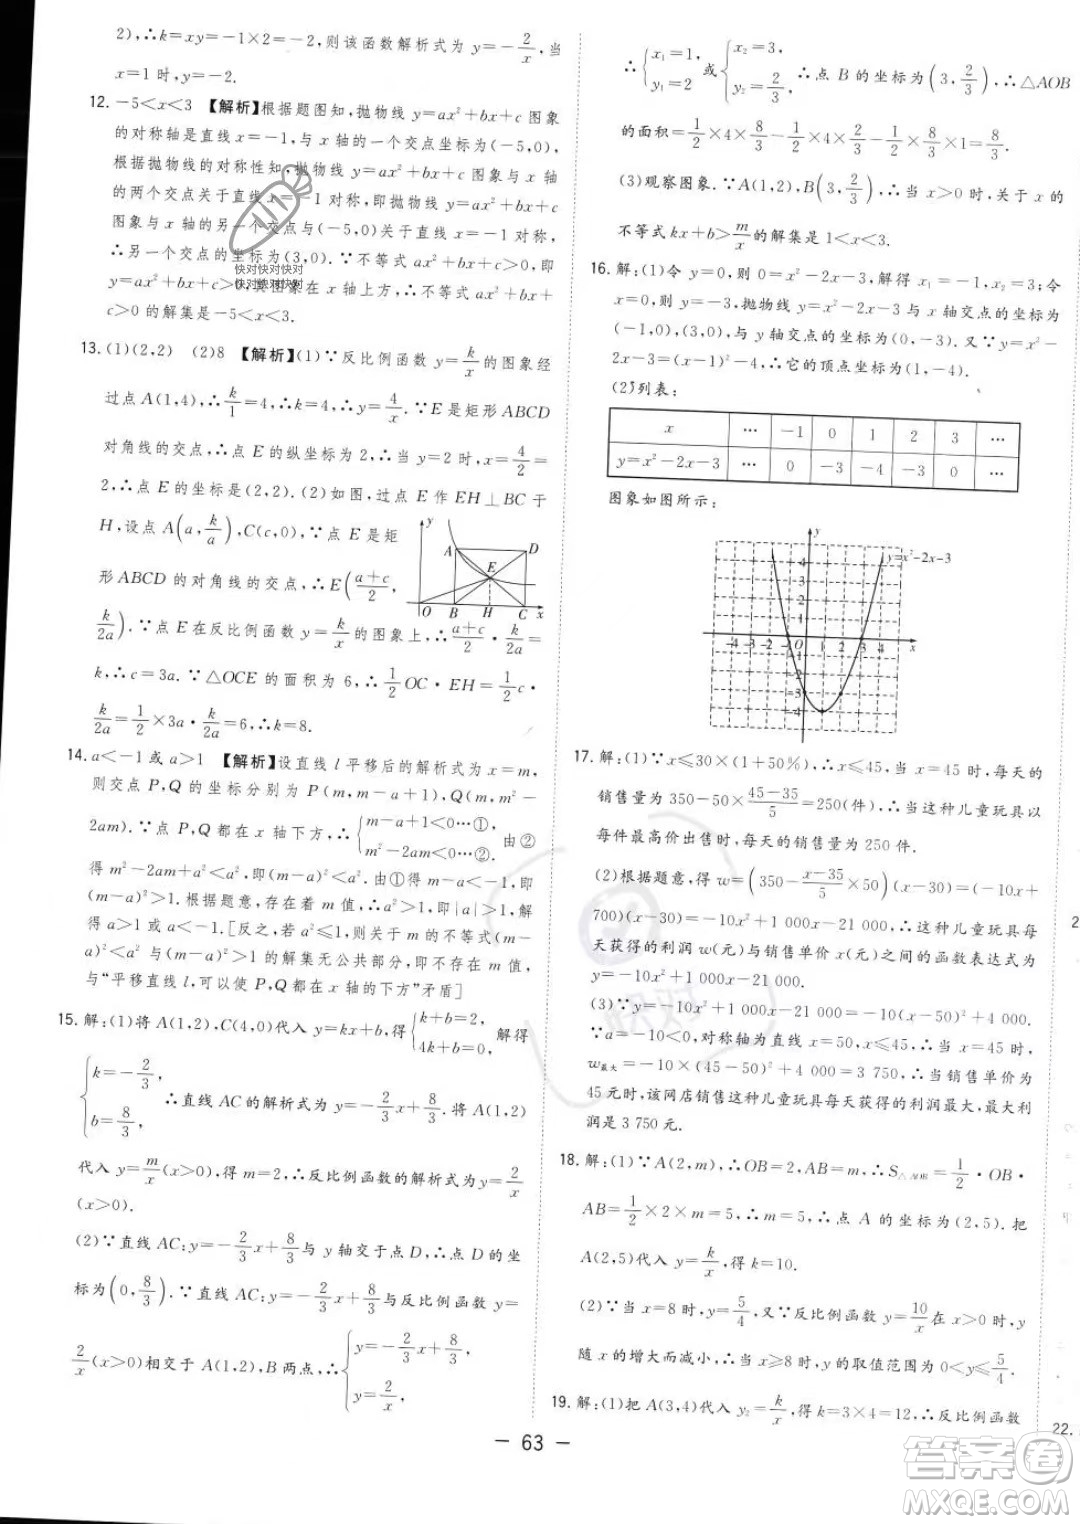 2),∴k=xy=-1×2=-2,则该函数解析式为 y=-2/x,当
x=1时,y=-2.
12. -5<x<3 【解析】根据题图知,抛物线 y=ax²+bx+c 图象
的对称轴是直线 x=-1,与 x 轴的一个交点坐标为(-5,0),
根据抛物线的对称性知,抛物线 y=ax²+bx+c 图象与 x 轴
的两个交点关于直线 x=-1 对称,即抛物线 y=ax²+bx+c
图象与 x 轴的另一个交点与(-5,0)关于直线 x=-1 对称,
∴另一个交点的坐标为(3,0).∵不等式 ax²+bx+c>0,
即y>0,其图象在 x 轴上方,∴不等式 ax²+bx+
c>0 的解集是-5<x<3.
13. (1)(2,2) (2)8 【解析】(1)∵反比例函数 y=k/x 的图象经
过点 A(1,4),∴k/1=4,∴k=4,∴y=4/x.∵E是矩形 ABCD
对角线的交点,∴点 E 的纵坐标为 2,∴当 y=2 时,x=4/2=2,
∴点 E 的坐标是(2,2).(2)如图,过点 E 作 EH⊥BC 于
H,设点 A(a,k/a),C(c,0),∵点 E 是矩
形 ABCD 的对角线的交点,∴E((a+c)/2,
k/2a).∵点 E 在反比例函数 y=k/x 的图象上,∴(a+c)/2·k/2a=
k,∴c=3a.∵△OCE 的面积为 6,∴1/2 OC·EH=1/2 c·
k/2a=1/2×3a·k/2a=6,∴k=8.
y A D E O B H C x
14. a<-1 或 a>1 【解析】设直线 l 平移后的解析式为 x=m,
则交点 P,Q 的坐标分别为 P(m,m-a+1),Q(m,m²-
2am).∵点 P,Q 都在 x 轴下方,∴{m-a+1<0…①, m²-2am<0…②. 由②
得 m²-2am+a²<a²,即(m-a)²<a².由①得 m-a<-1,即
(m-a)²>1,根据题意,存在 m 值,∴a²>1,即|a|>1,解
得 a>1 或 a<-1.[反之,若 a²≤1,则关于 m 的不等式(m-
a)²<a²与(m-a)²>1 的解集无公共部分,即不存在 m 值,
与“平移直线 l,可以使 P,Q 都在 x 轴的下方”矛盾]
15. 解:(1)将 A(1,2),C(4,0)代入 y=kx+b,得{k+b=2, 4k+b=0, 解得
{k=-2/3, b=8/3, ∴直线 AC 的解析式为 y=-2/3x+8/3.将 A(1,2)
代入 y=m/x(x>0),得 m=2,∴反比例函数的解析式为 y=2/x
(x>0).
(2)∵直线 AC:y=-2/3x+8/3与 y 轴交于点 D,∴点 D 的坐
标为(0,8/3).∵直线 AC:y=-2/3x+8/3与反比例函数 y=
2/x(x>0)相交于 A(1,2),B 两点,∴{y=-2/3x+8/3, y=2/x,
∴{x₁=1, y₁=2 或{x₂=3, y₂=2/3, ∴点 B 的坐标为(3,2/3),∴△AOB
的面积=1/2×4×8/3-1/2×4×2/3-1/2×8/3×1=8/3.
(3)观察图象.∵A(1,2),B(3,2/3),∴当 x>0 时,关于 x 的
不等式 kx+b>m/x的解集是 1<x<3.
16. 解:(1)令 y=0,则 0=x²-2x-3,解得 x₁=-1,x₂=3;令
x=0,则 y=-3,抛物线 y=x²-2x-3 与 x 轴交点的坐标为
(-1,0),(3,0),与 y 轴交点的坐标为(0,-3).又∵y=x²-
2x-3=(x-1)²-4,∴它的顶点坐标为(1,-4).
(2)列表:
x … -1 0 1 2 3 …
y=x²-2x-3 … 0 -3 -4 -3 0 …
图象如图所示:
y y=x²-2x-3
4 3 2 1
-4 -3 -2 -1 O 1 2 3 4 x
-1 -2 -3 -4
17. 解:(1)∵x≤30×(1+50%),∴x≤45,当 x=45 时,每天的
销售量为 350-50×(45-35)/5=250(件),∴当这种儿童玩具以
每件最高价出售时,每天的销售量为 250 件.
(2)根据题意,得 w=(350-(x-35)/5×50)(x-30)=(-10x+
700)(x-30)=-10x²+1 000x-21 000,∴这种儿童玩具每
天获得的利润 w(元)与销售单价 x(元)之间的函数表达式为
y=-10x²+1 000x-21 000.
(3)∵w=-10x²+1 000x-21 000=-10(x-50)²+4 000.
∵a=-10<0,对称轴为直线 x=50,∴当 x=45 时
w最大=-10×(45-50)²+4 000=3 750,∴当销售单价为
45 元时,该网店销售这种儿童玩具每天获得的利润最大,最大利
润是 3 750 元.
18. 解:(1)∵A(2,m),∴OB=2,AB=m,∴S△AOB=1/2·OB·
AB=1/2×2×m=5,∴m=5,∴点 A 的坐标为(2,5).把
A(2,5)代入 y=k/x,得 k=10.
(2)∵当 x=8 时,y=5/4,又∵反比例函数 y=10/x在 x>0 时,y
随 x 的增大而减小,∴当 x≥8 时,y 的取值范围为 0<y≤5/4.
19. 解:(1)把 A(3,4)代入 y₂=k/x,得 k=3×4=12,∴反比例函数
— 63 —
22.
快对快对快对
快对快对快对
快对
答案圈
MXQE.COM